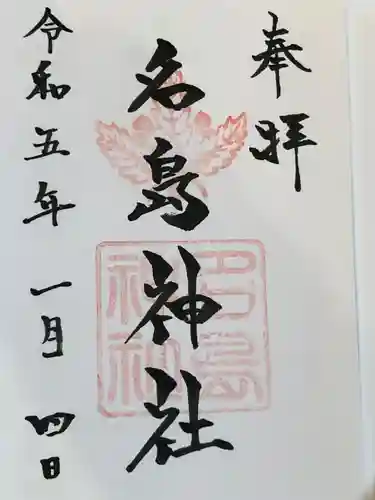 奉拝
名島神社
名島神社
令和五年 一月 四日